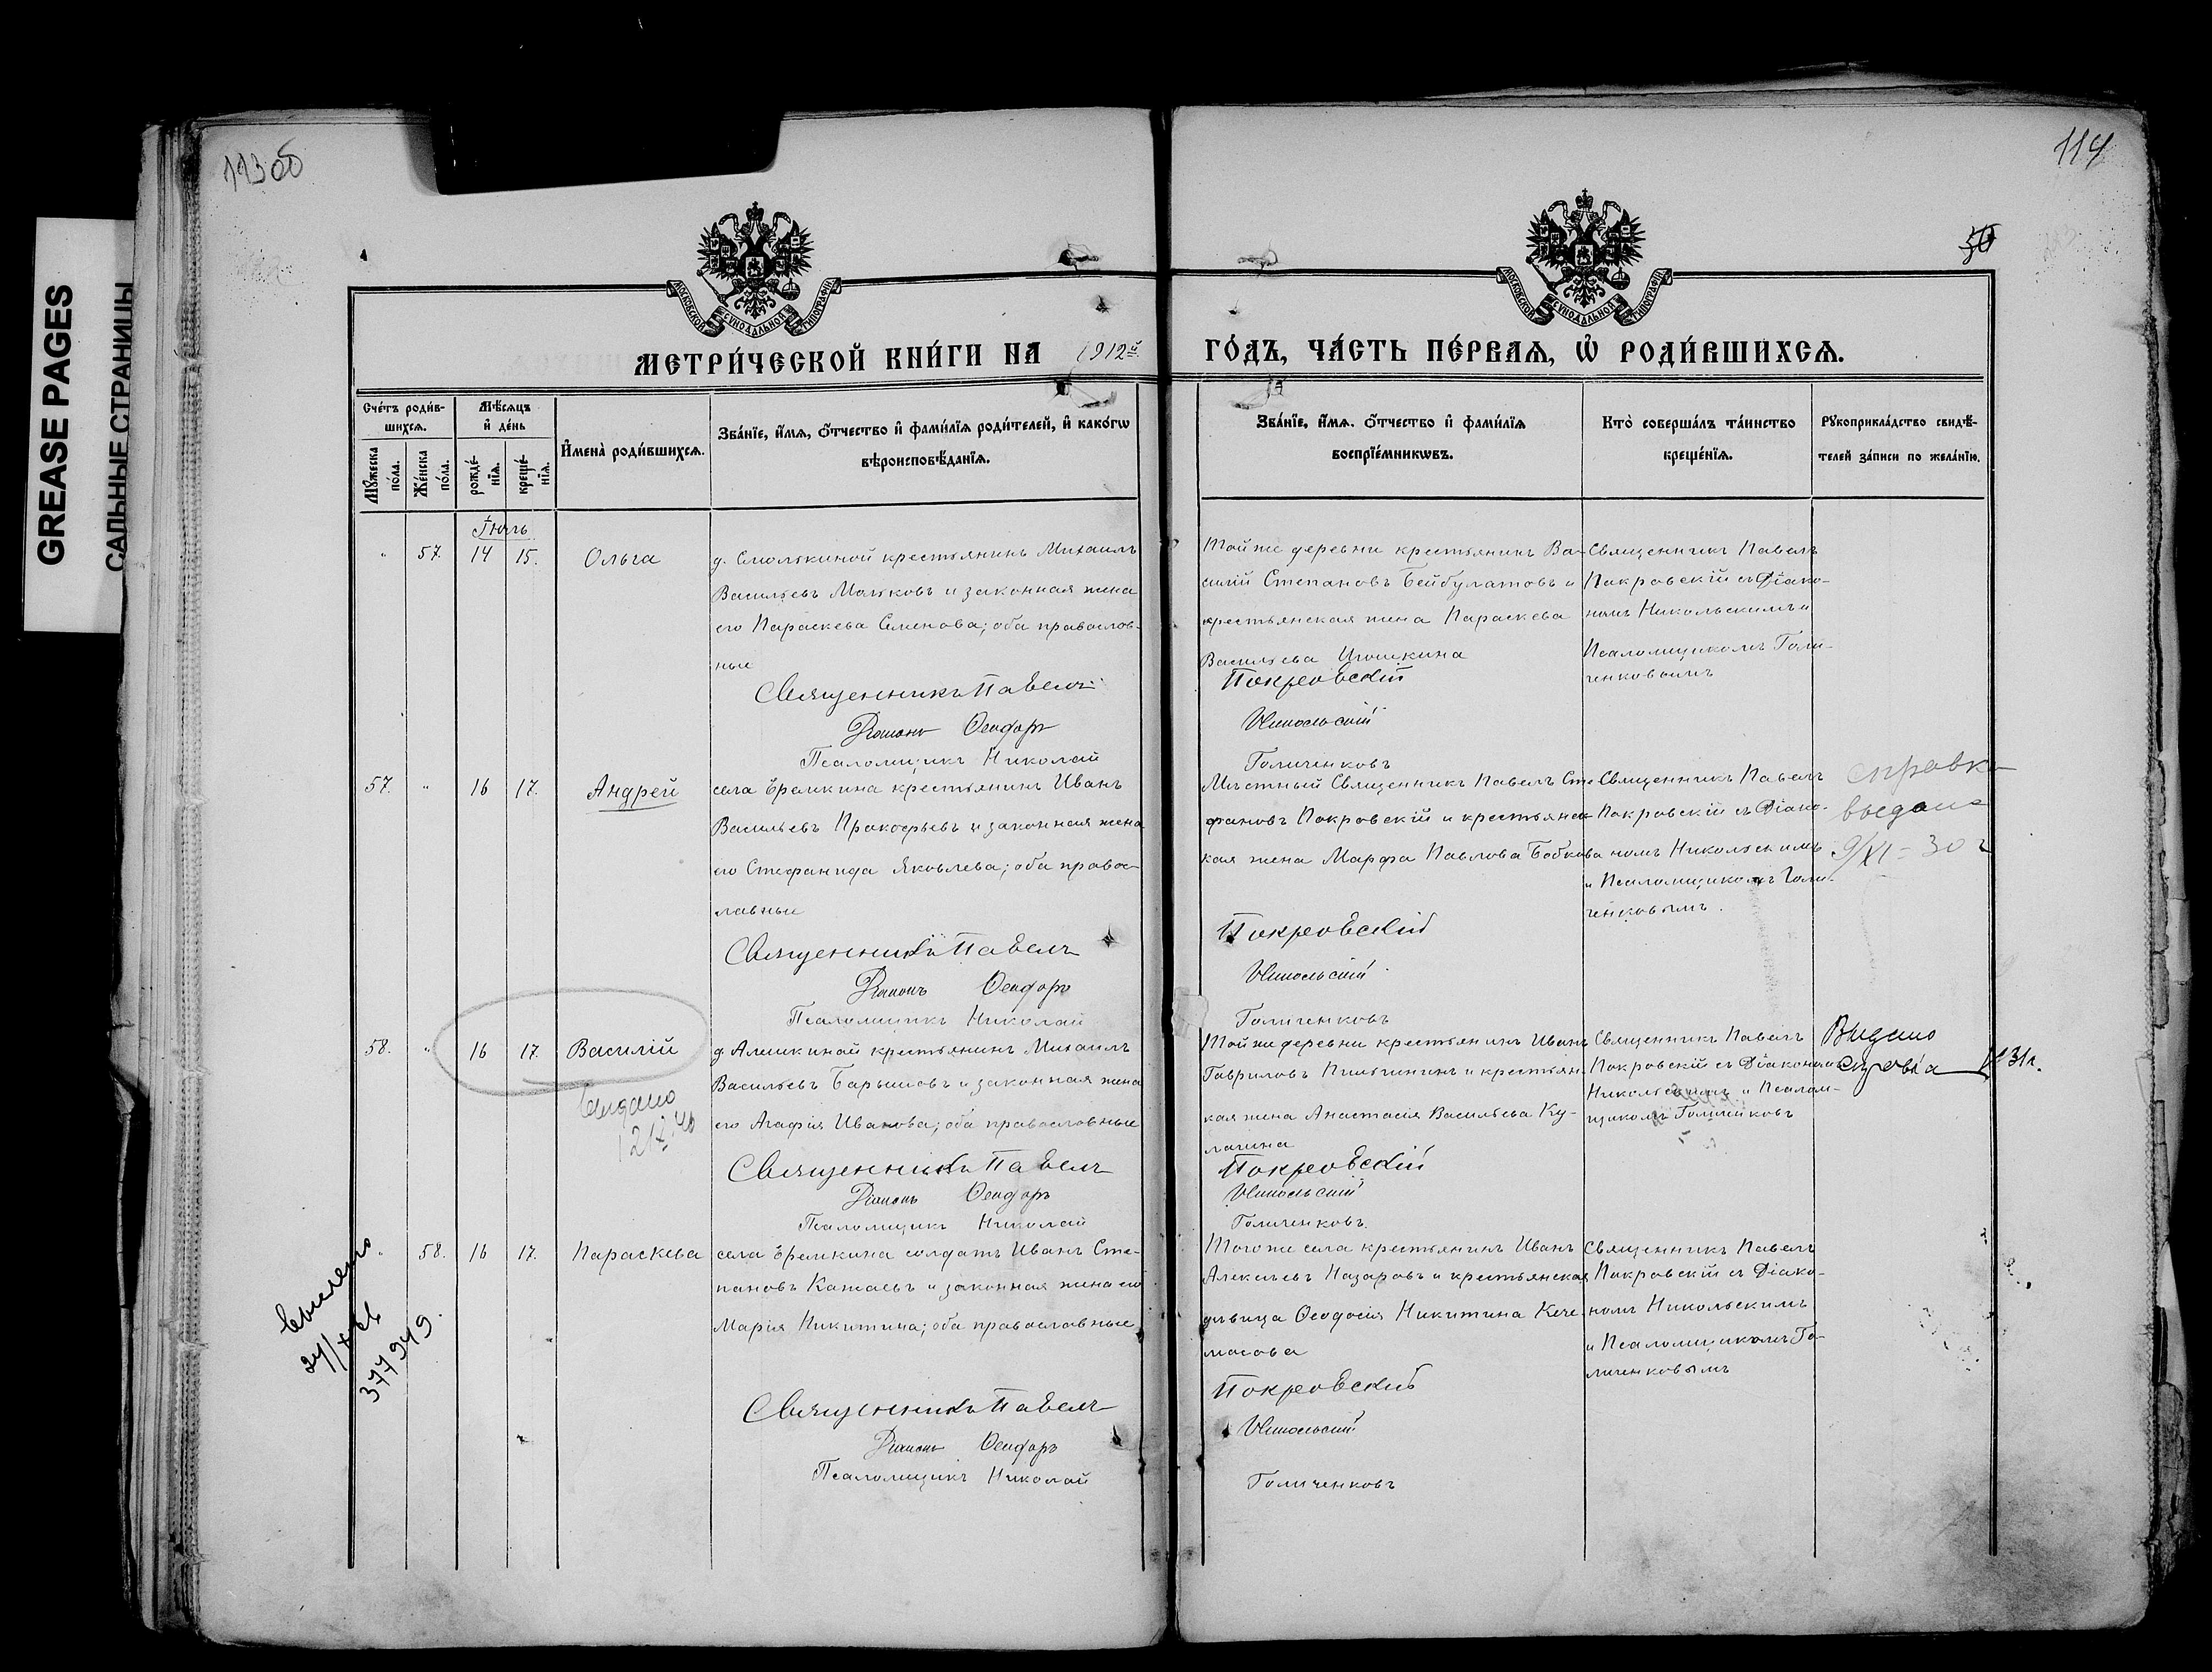 113об
114
50
GREASE PAGES
САЛЬНЫЕ СТРАНИЦЫ
МОСКОВСКОЙ СѴНОДАЛЬНОЙ ТИПОГРАФІИ
МОСКОВСКОЙ СѴНОДАЛЬНОЙ ТИПОГРАФІИ
МЕТРИ́ЧЕСКОЙ КНИ́ГИ НА 1912й
ГО́ДЪ, ЧА́СТЬ ПЕ́РВАЯ, Ѡ РОДИ́ВШИХСЯ.
Сче́тъ роди́в-
шихся.
Мꙋ́жеска по́ла.
Же́нска по́ла.
Мѣ́сяцъ и де́нь
рожде́-нїя.
креще́-нїя.
И́мена̀ роди́вшихся.
Зва́нїе, и́мя, о́тчество и фами́лїя роди́телей, и како́гѡ
вѣроисповѣ́данїя.
Зва́нїе, и́мя. о́тчество и фами́лїя
воспрїе́мникѡвъ.
Кто̀ соверша́лъ та́инство
креще́нїя.
Рꙋкоприкла́дство свидѣ́-
телей за́писи по жела́нїю.
Іюль
" 57. 14 15. Ольга
д. Смолькиной крестьянинъ Михаилъ
Васильевъ Мальковъ и законная жена
его Параскева Семенова; оба православ-
ные
Священникъ Павелъ
Діаконъ Ѳеодоръ
Псаломщикъ Николай
Той же деревни крестьянинъ Ва-
силій Степановъ Бейбулатовъ и
крестьянская жена Параскева
Васильева
Покровскій
Никольскій
Голиченковъ
Священникъ Павелъ
Покровскій съ Діако-
номъ Никольскимъ и
Псаломщикомъ Голи-
ченковымъ
57. " 16 17. Андрей
села Еремкина крестьянинъ Иванъ
Васильевъ Прокофьевъ и законная жена
его Стефанида Яковлева; оба правос-
лавные
Священникъ Павелъ
Діаконъ Ѳеодоръ
Псаломщикъ Николай
Мѣстный Священникъ Павелъ Сте-
фановъ Покровскій и крестьянс-
кая жена Марфа Павлова Бобкова
Покровскій
Никольскій
Голиченковъ
Священникъ Павелъ
Покровскій съ Діако-
номъ Никольскимъ
и Псаломщикомъ Голи-
ченковымъ.
справка
выдана
9/XI-30 г
58. " 16 17. Василій
выдано
д. Алешкиной крестьянинъ Михаилъ
Васильевъ Барышовъ и законная жена
его Агафія Иванова; оба православные
Священникъ Павелъ
Діаконъ Ѳеодоръ
Псаломщикъ Николай
Той же деревни крестьянинъ Иванъ
Гавриловъ и крестьян-
кая жена Анастасія Васильева Ку-
лагина
Покровскій
Никольскій
Голиченковъ.
Священникъ Павелъ
Покровскій съ Діакономъ
Никольскимъ и Псалом-
щикомъ
Выдано
31г.
" 58. 16 17. Параскева
села Еремкина солдатъ Иванъ Сте-
пановъ Катаевъ и законная жена его
Марія Никитина; оба православные
Священникъ Павелъ
Діаконъ Ѳеодоръ
Псаломщикъ Николай
Того же села крестьянинъ Иванъ
Алексѣевъ Назаровъ и крестьянская
дѣвица Ѳеодосія Никитина Кече-
масова
Покровскій
Никольскій
Голиченковъ
Священникъ Павелъ
Покровскій съ Діако-
номъ Никольскимъ
и Псаломщикомъ Го-
личенковымъ
377949.